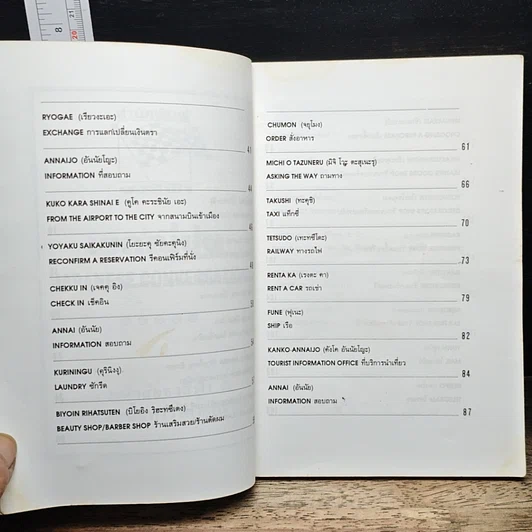 8
20
21
RYOGAE (เรียวงะเอะ)
EXCHANGE การแลกเปลี่ยนเงินตรา
41
ANNAIJO (อันนัยโญะ)
INFORMATION ที่สอบถาม
44
KUKO KARA SHINAI E (คูโค คะระชินัย เอะ)
FROM THE AIRPORT TO THE CITY จากสนามบินเข้าเมือง
YOYAKU SAIKAKUNIN (โยะยะคุ ซัยคะคุนิง)
RECONFIRM A RESERVATION รีคอนเฟิร์มที่นั่ง
CHEKKU IN (เจคคุ อิง)
CHECK IN เช็คอิน
ANNAI (อันนัย)
INFORMATION สอบถาม
KURININGU (คุรินิงงุ)
LAUNDRY ซักรีด
BIYOIN RIHATSUTEN (บิโยอิง ริฮะทซึเตง)
BEAUTY SHOP/BARBER SHOP ร้านเสริมสวย/ร้านตัดผม
CHUMON (จยุโมง)
ORDER สั่งอาหาร
61
MICHI O TAZUNERU (มิจิ โอะ ตะสุเนะรุ)
ASKING THE WAY ถามทาง
66
TAKUSHI (ทะคุชิ)
TAXI แท็กซี่
70
TETSUDO (เทะทซึโดะ)
RAILWAY ทางรถไฟ
73
RENTA KA (เรงตะ คา)
RENT A CAR รถเช่า
79
FUNE (ฟุเนะ)
SHIP เรือ
82
KANKO ANNAIJO (คังโค อันนัยโญะ)
TOURIST INFORMATION OFFICE ที่บริการนำเที่ยว
84
ANNAI (อันนัย)
INFORMATION สอบถาม
87